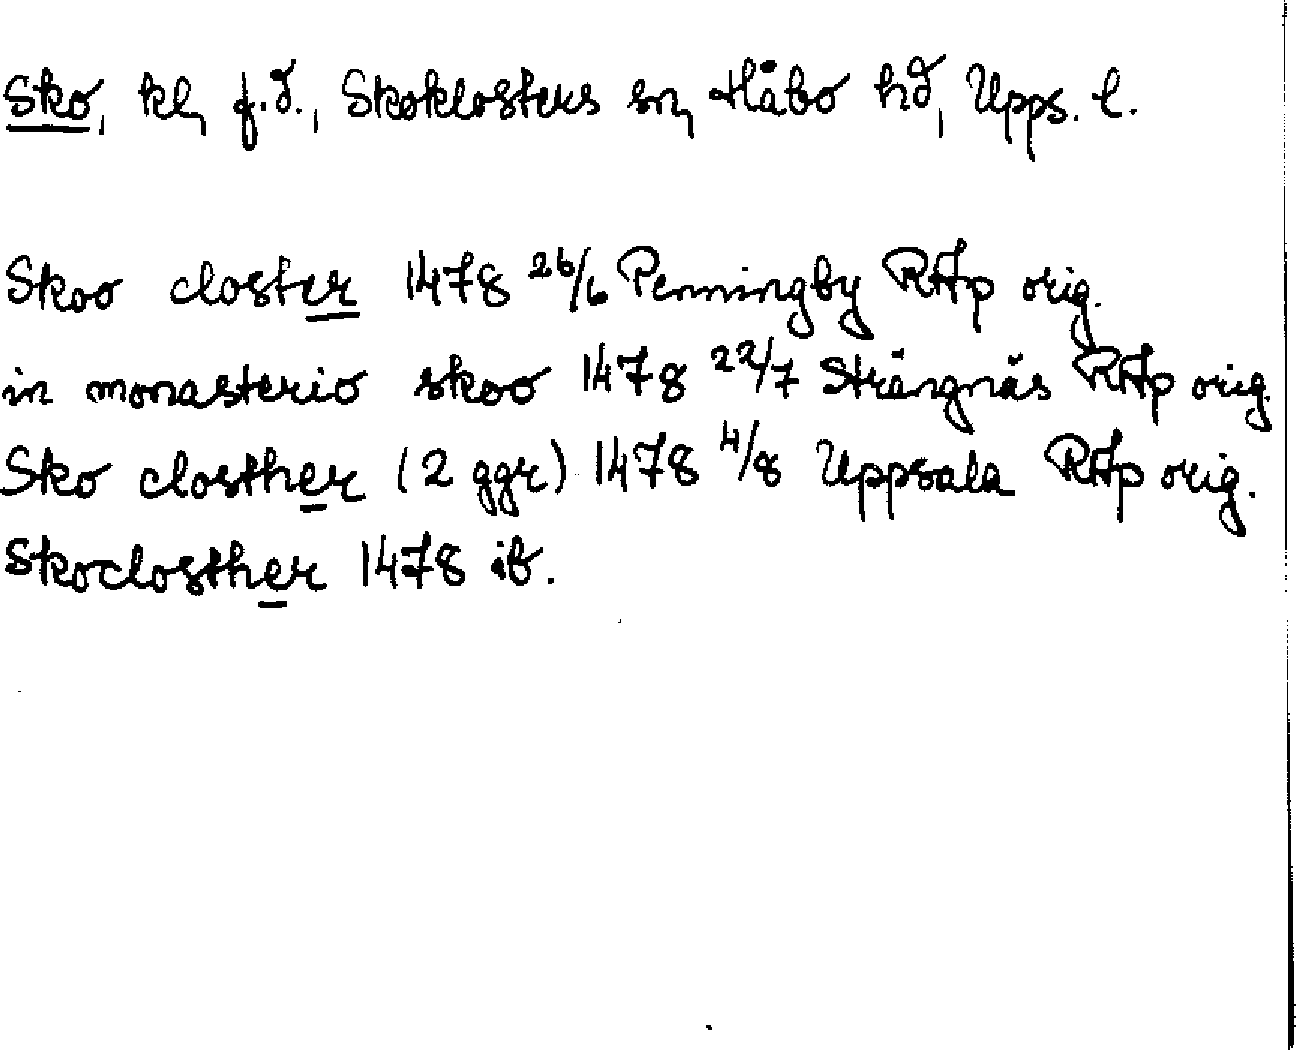 Sko, kl, f.d., Skoklosters sn, Håbo hd, Upps. l.
Skoo closter 1478 26/6 Penningby RAp orig.
in monasterio skoo 1478 22/7 Strängnäs RAp orig.
Sko closther (2 ggr) 1478 4/8 Uppsala RAp orig.
Skoclosther 1478 ib.